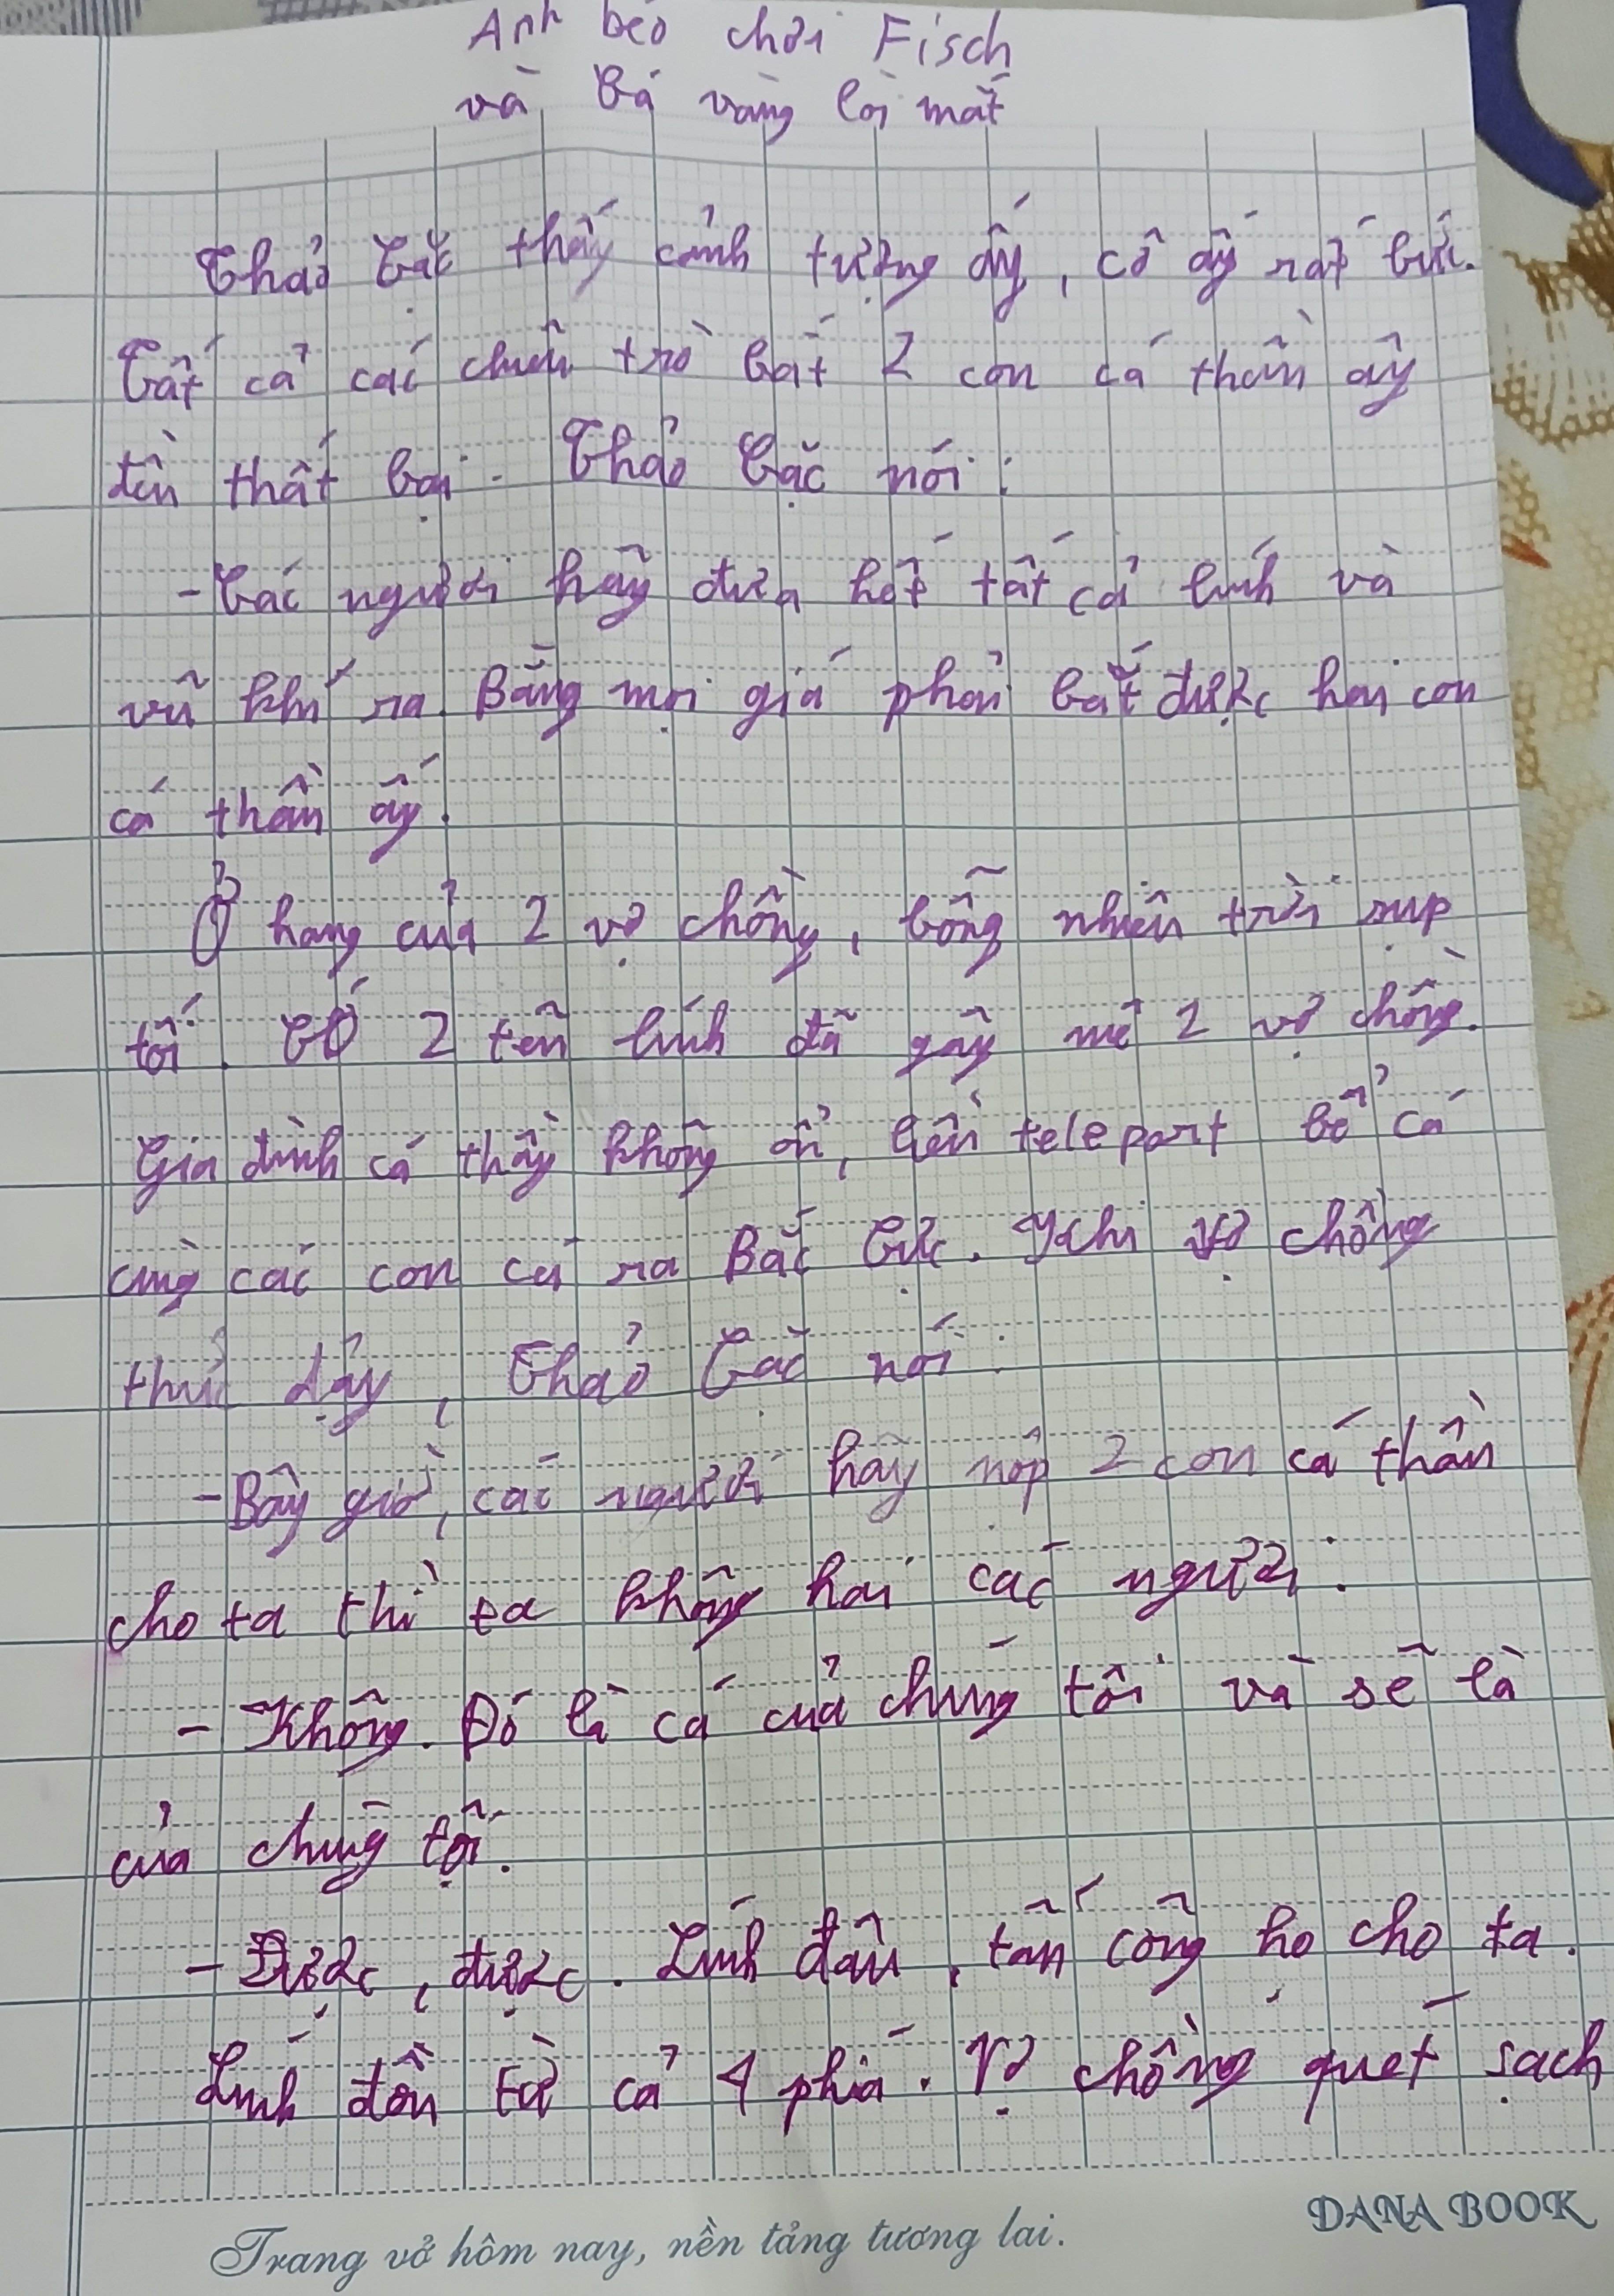 Anh béo chơi Fisch
và cá vàng lòi mắt
Thảo Cặc thấy cảnh tượng ấy, cô ấy rất bức.
Tất cả các chiêu trò bắt 2 con cá thần ấy
đều thất bại. Thảo Cặc nói:
- Các ngươi hãy đưa hết tất cả lính và
vũ khí ra. Bằng mọi giá phải bắt được hai con
cá thần ấy.
Ở hang của 2 vợ chồng, bỗng nhiên trời sụp
tối. Có 2 tên lính đã gây mê 2 vợ chồng.
Gia đình cá thấy không ổn, liền teleport bể cá
cùng các con cá ra Bắc Cực. Khi vợ chồng
thức dậy, Thảo Cặc nói:
- Bây giờ, các ngươi hãy nộp 2 con cá thần
cho ta thì ta không hại các ngươi.
- Không. Đó là cá của chúng tôi và sẽ là
của chúng tôi.
- Được, được. Lính đâu, tấn công họ cho ta.
Lính đến từ cả 4 phía. Vợ chồng quét sạch
DANA BOOK
Trang vở hôm nay, nền tảng tương lai.